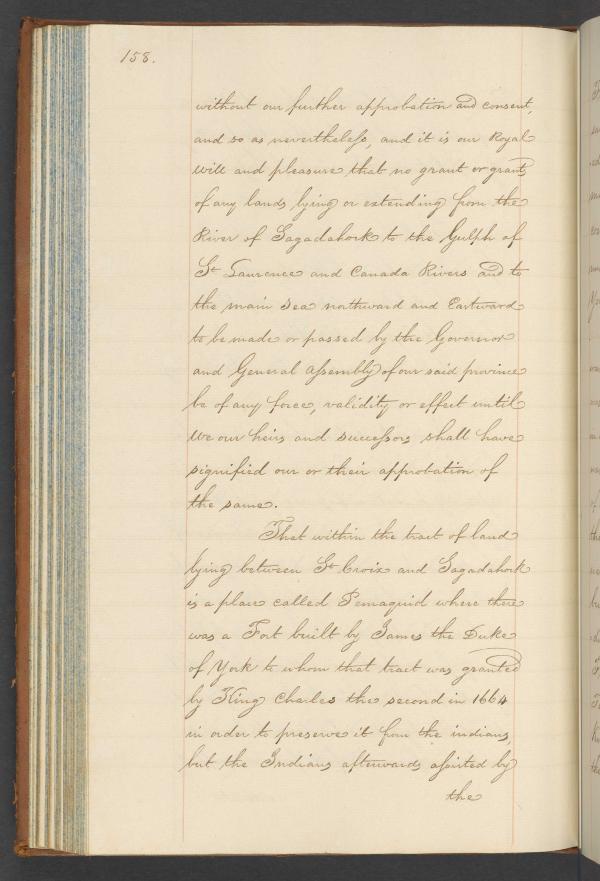 158.
without our further approbation and consent,
and so as nevertheless, and it is our Royal
will and pleasure that no grant or grants
of any lands lying or extending from the
River of Sagadahock to the Gulph of
St Laurence and Canada Rivers and to
the main Sea northward and Eastward
to be made or passed by the Governor
and General Assembly of our said province
be of any force, validity or effect until
We our heirs and successors shall have
signified our or their approbation of
the same.
That within the tract of land
lying between St Croix and Sagadahock
is a place called Pemaquid where there
was a Fort built by James the Duke
of York to whom that tract was granted
by King Charles the second in 1664
in order to preserve it from the indians,
but the Indians afterwards assisted by
the